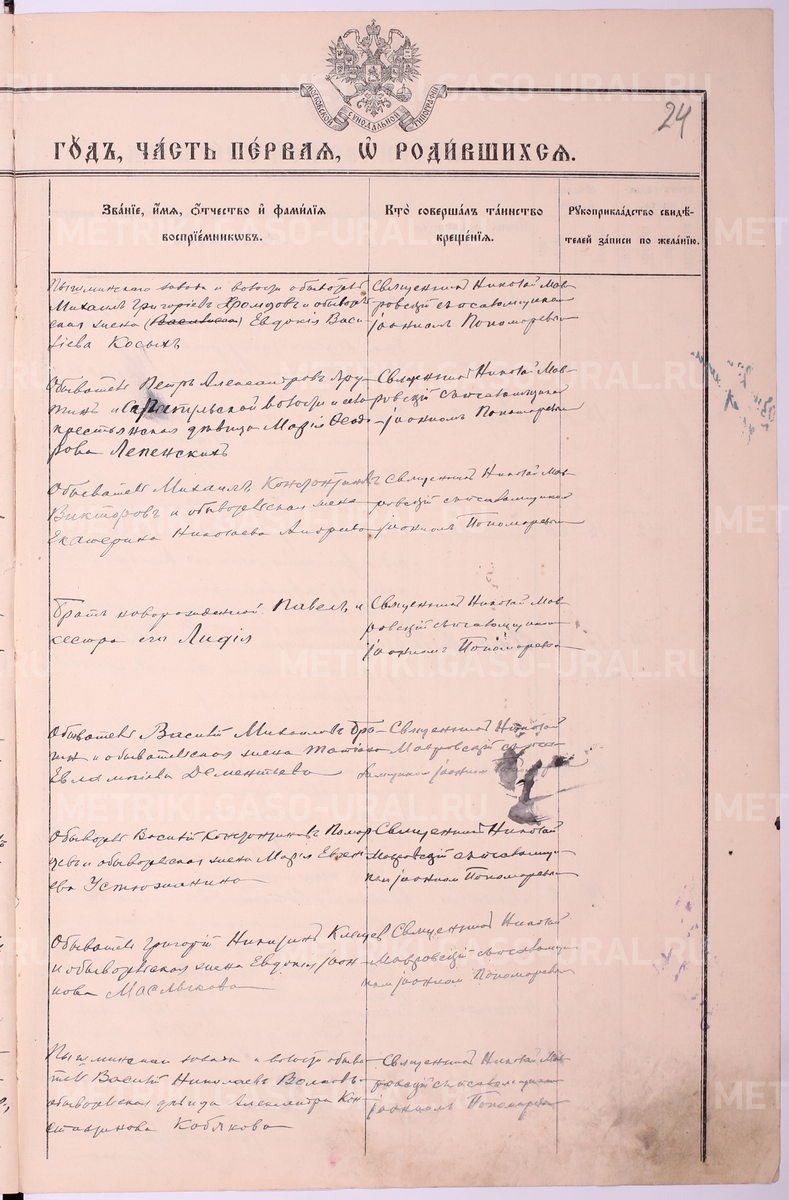 МОСКОВСКОЙ СѴНОДАЛЬНОЙ ТИПОГРАФІИ
24
ГО́ДЪ, ЧА́СТЬ ПЕ́РВАЯ, Ѡ҆ РОДИ́ВШИХСЯ.
Зва́нїе, и҆́мя, ѻ҆́тчество и҆ фами́лїя
воспрїе́мникѡвъ.
Кто̀ соверша́лъ та́инство
креще́нїя.
Рꙋкоприкла́дство свидѣ́-
телей за́писи по жела́нїю.
Пышминскаго завода и волости обыватель
Михаилъ Григорьевъ и обыватель-
ская жена (Василиса) Евдокія Васи-
ліева Косыхъ
Священникъ Николай Мав-
ровскій съ псаломщикомъ
Іоанномъ Пономаревымъ
Обыватель Петръ Александровъ
волости и села
крестьянская дѣвица Марія Ѳеодо-
рова Лепенскихъ
Священникъ Николай Мав-
ровскій съ псаломщикомъ
Іоанномъ Пономаревымъ
Обыватель Михаилъ Константиновъ
Викторовъ и обывательская жена
Екатерина Николаева
Священникъ Николай Мав-
ровскій съ псаломщикомъ
Іоанномъ Пономаревымъ
Братъ новорожденной Павелъ и
сестра его Лидія
Священникъ Николай Мав-
ровскій съ псаломщикомъ
Іоанномъ Пономаревымъ
Обыватель Василій Михаиловъ Бра-
гинъ и обывательская жена Татіана
Евлампіева Дементьева
Священникъ Николай
Мавровскій съ псало-
мщикомъ Іоанномъ
Обыватель Василій Константиновъ
и обывательская жена Марія
Устюжанина
Священникъ Николай
Мавровскій съ псаломщи-
комъ Іоанномъ Пономаревымъ
Обыватель Григорій Клещев
и обывательская жена Евдокія Іоан-
нова Маслыкова
Священникъ Николай
Мавровскій съ псаломщи-
комъ Іоанномъ Пономаревымъ
Пышминскаго завода и волости обыва-
тель Василій Николаевъ Волковъ
обывательская дѣвица Александра Кон-
стантинова Кобякова
Священникъ Николай Мав-
ровскій съ псаломщикомъ
Іоанномъ Пономаревымъ
METRIKI.GASO-URAL.RU